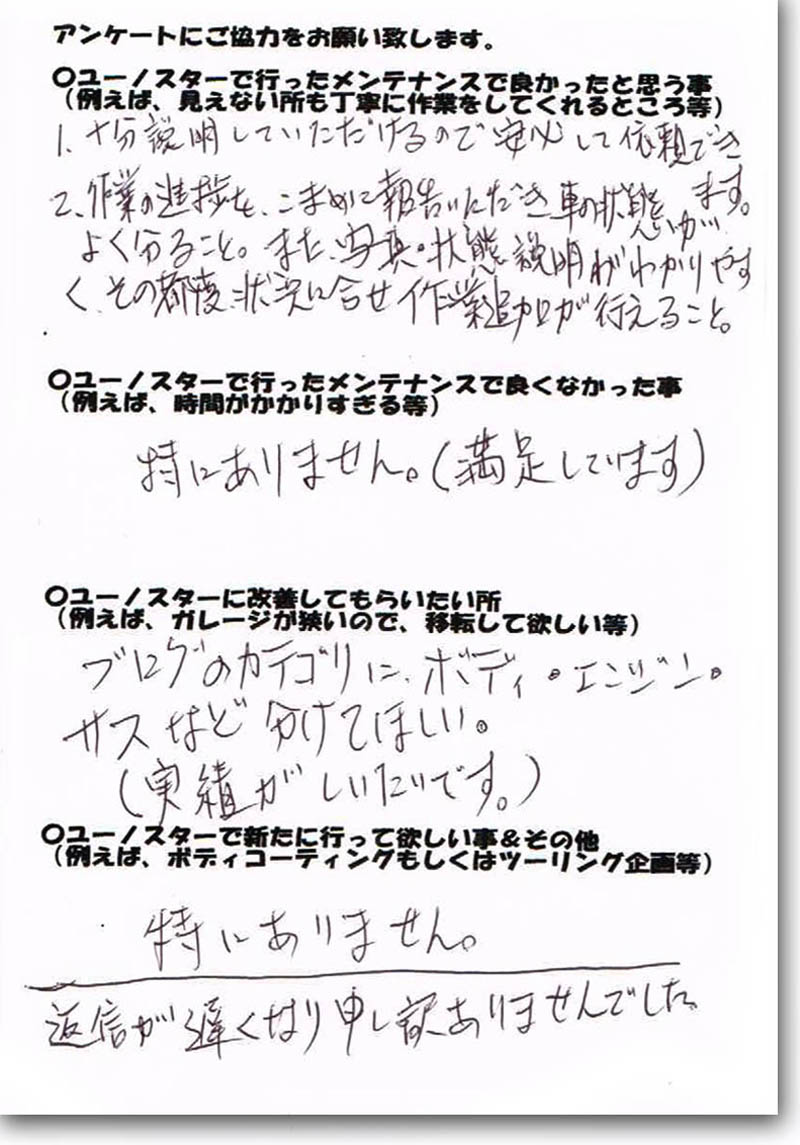 アンケートにご協力をお願い致します。
〇ユーノスターで行ったメンテナンスで良かったと思う事
（例えば、見えない所も丁寧に作業をしてくれるところ等）
1、十分説明していただけるので安心して依頼でき
ます。
2、作業の進捗を、こまめに報告いただき車の状態が
よく分ること。また、写真・状態説明がわかりやす
く、その都度、状況に合せ作業追加が行えること。
〇ユーノスターで行ったメンテナンスで良くなかった事
（例えば、時間がかかりすぎる等）
特にありません。（満足しています）
〇ユーノスターに改善してもらいたい所
（例えば、ガレージが狭いので、移転して欲しい等）
ブログのカテゴリに、ボディ・エンジン・
サスなど分けてほしい。
（実績がしりたいです。）
〇ユーノスターで新たに行って欲しい事＆その他
（例えば、ボディコーティングもしくはツーリング企画等）
特にありません。
返信が遅くなり申し訳ありませんでした。